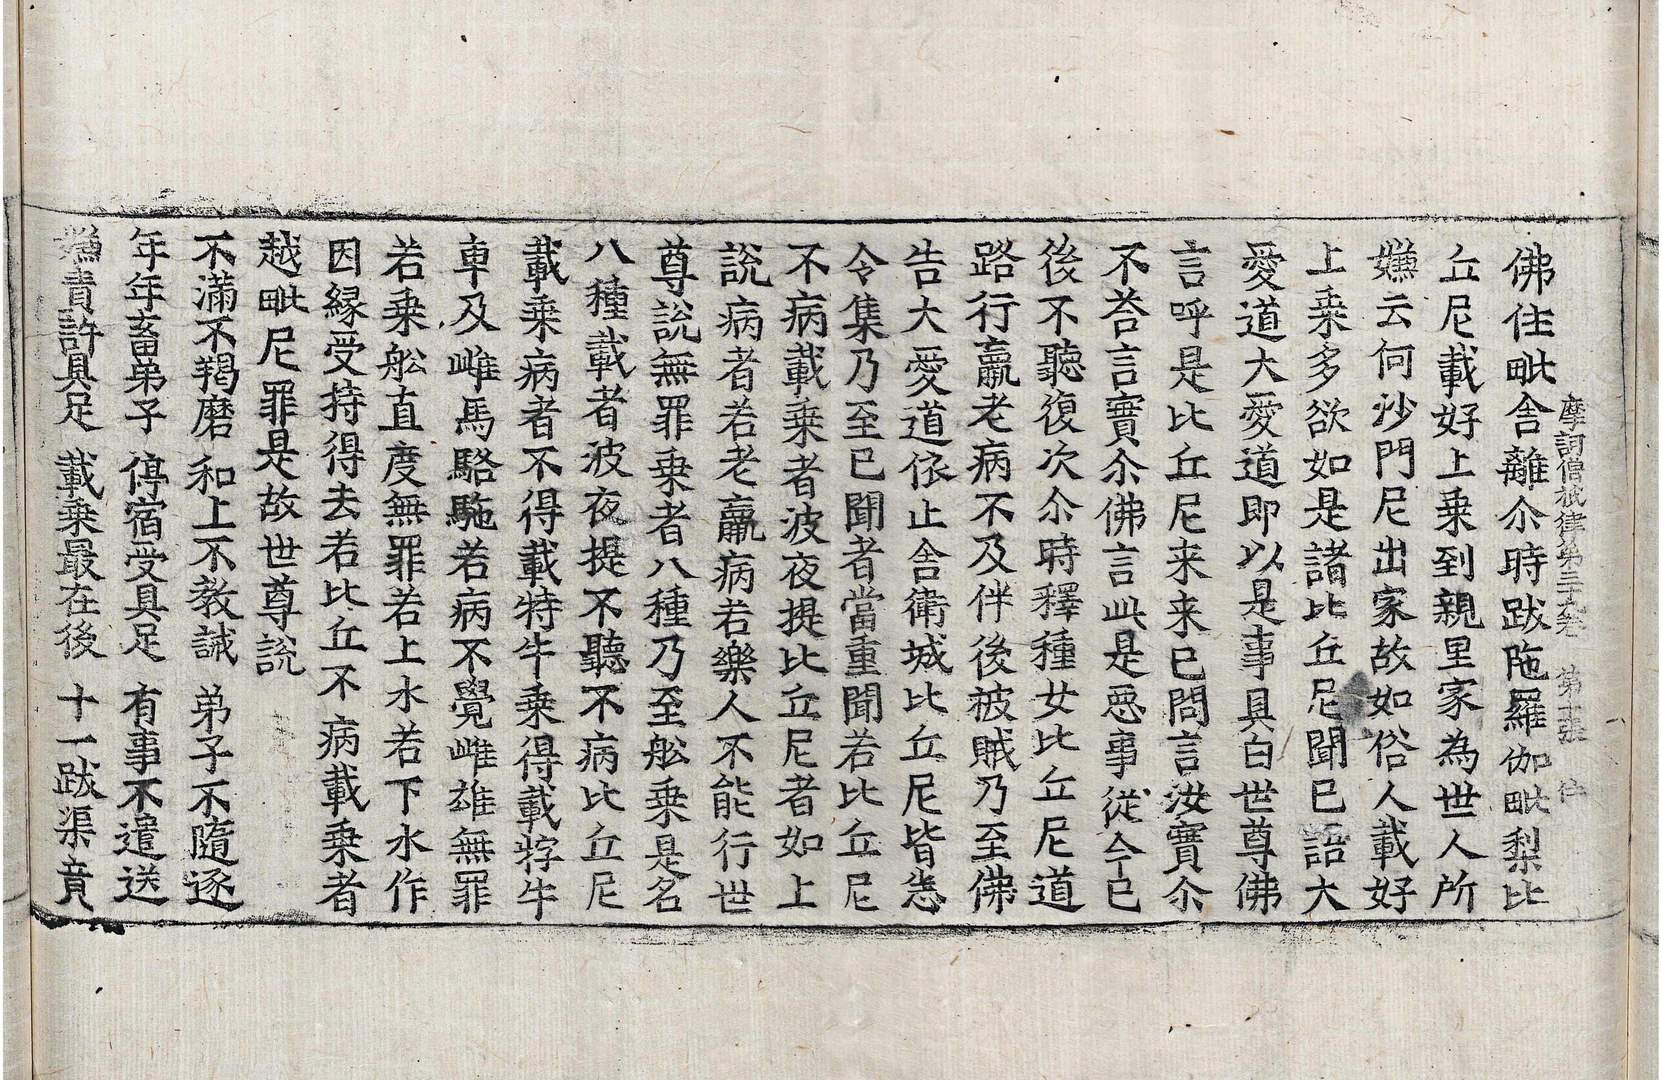 摩訶僧祇律第三十九卷 第十張
佛住毗舍離尒時跋陁羅伽毗梨比
丘尼載好上乗到親里家為世人所
嫌云何沙門尼出家故如俗人載好
上乗多欲如是諸比丘尼聞已語大
愛道大愛道即以是事具白世尊佛
言呼是比丘尼来来已問言汝實尒
不荅言實尒佛言此是惡事從今已
後不聽復次尒時釋種女比丘尼道
路行羸老病不及伴後被賊乃至佛
告大愛道依止舍衛城比丘尼皆悉
令集乃至已聞者當重聞若比丘尼
不病載乗者波夜提比丘尼者如上
說病者若老羸病若樂人不能行世
尊說無罪乗者八種乃至舩乗是名
八種載者波夜提不聽不病比丘尼
載乗病者不得載特牛乗得載牸牛
車及雌馬駱駞若病不覺雌雄無罪
若乗舩直度無罪若上水若下水作
因縁受持得去若比丘不病載乗者
越毗尼罪是故世尊說
不滿不羯磨 和上不教誡 弟子不隨逐
年年畜弟子 停宿受具足 有事不遣送
嫌責許具足 載乗最在後 十一跋渠竟